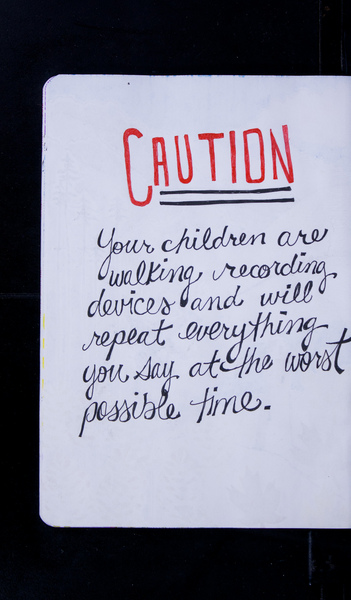 CAUTION
Your children are
walking recording
devices and will
repeat everything
you say at the worst
possible time.